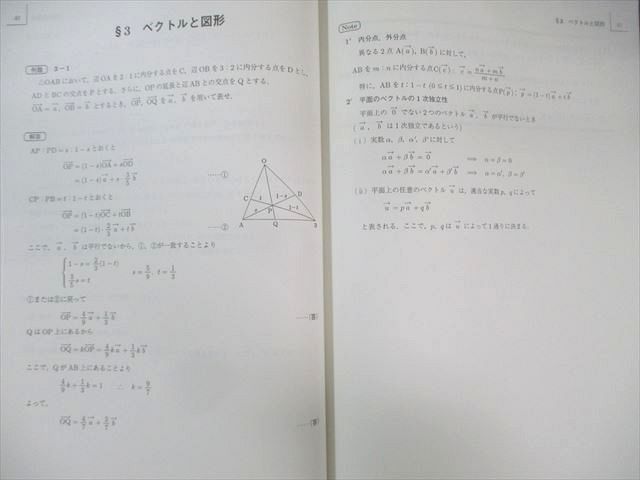 §3 ベクトルと図形
例題 3-1
△OABにおいて，辺OAを2：1に内分する点をC，辺OBを3：2に内分する点をDとし，
ADとBCの交点をPとする。さらに，OPの延長と辺ABとの交点をQとする。
OA=a，OB=bとするとき，OP，OQをa，bを用いて表せ。
解答
AP：PD=s：1-sとおくと
OP=(1-s)OA+sOD
=(1-s)a+s·3/5 b ……①
CP：PB=t：1-tとおくと
OP=(1-t)OC+tOB
=(1-t)·2/3 a+tb ……②
O
C
D
t
1-s
P
s
1-t
A
Q
ここで，a，bは平行でないから，①，②が一致することより
1-s=2/3(1-t)
3/5 s=t
s=5/9, t=1/3
①または②に戻って
OP=4/9 a+1/3 b ……(答)
QはOP上にあるから
OQ=kOP=4/9 ka+1/3 kb
ここで，QがAB上にあることより
4/9 k+1/3 k=1 ∴ k=9/7
よって，
OQ=4/7 a+3/7 b ……(答)
§3 ベクトルと図形
Note
1° 内分点，外分点
異なる2点A(a)，B(b)に対して，
ABをm：nに内分する点C(c)：c=(na+mb)/(m+n)
特に，ABをt：1-t (0≦t≦1)に内分する点P(p)：p=(1-t)a+tb
2° 平面のベクトルの1次独立性
平面上の0でない2つのベクトルa，bが平行でないとき
(a，bは1次独立であるという)
(i) 実数α，β，α′，β′に対して
αa+βb=0 ⟹ α=β=0
αa+βb=α′a+β′b ⟹ α=α′, β=β′
(ii) 平面上の任意のベクトルuは，適当な実数p，qによって
u=pa+qb
と表される。ここで，p，qはuによって1通りに決まる。